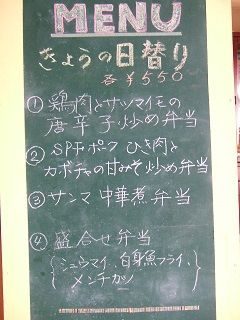 MENU
きょうの日替り
各¥550
① 鶏肉とサツマイモの
唐辛子炒め弁当
② SPFポーク ひき肉と
カボチャの甘みそ炒め弁当
③ サンマ 中華煮 弁当
④ 盛合せ弁当
(シュウマイ、白身魚フライ、
メンチカツ)